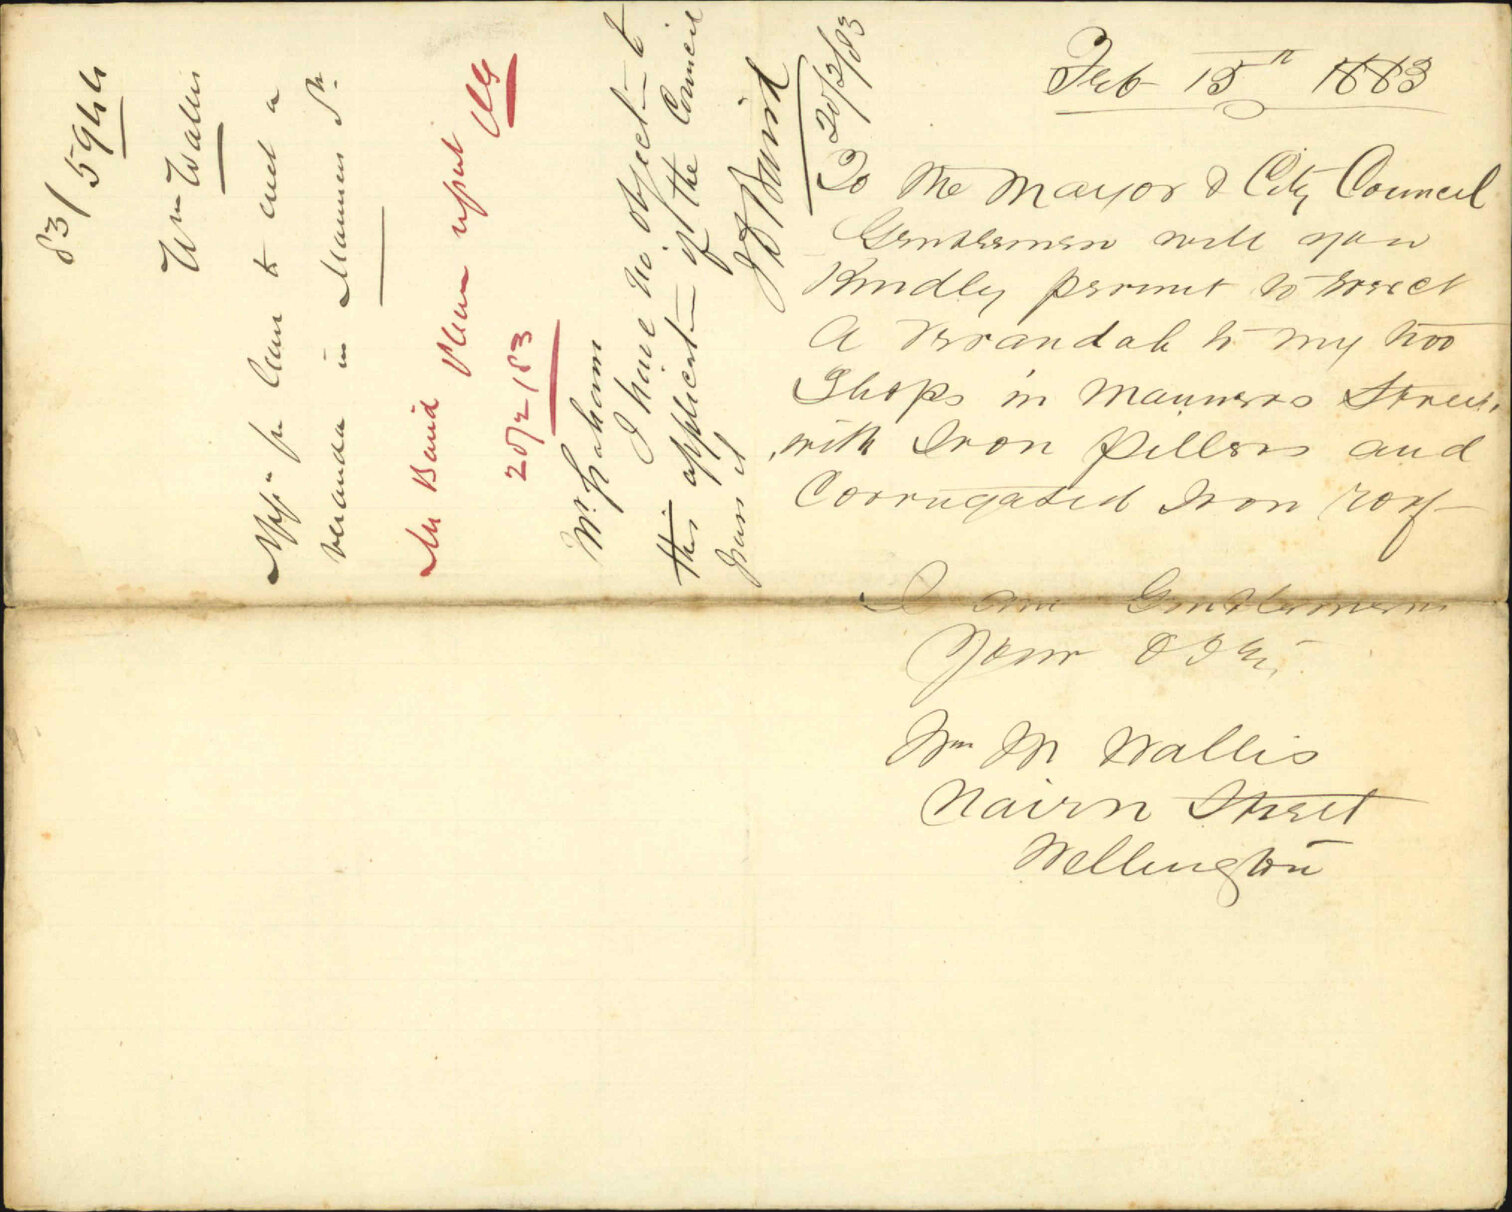 Feb 15th 1883
To the Mayor & City Council
Gentlemen will you
Kindly permit to erect
A Verandah to my two
Shops in Manners Street
with Iron Pillers and
Corrugated Iron roof
I am Gentlemen
Your
Wm M Wallis
Nairn Street
Wellington
83/594
Wm Wallis
for leave to erect a
veranda in Manners St.
Mr Baird Please report
20/2/83
Mr. Graham
I have no object- to
this applicat- if the Council
grant it
J D Baird
20/2/83